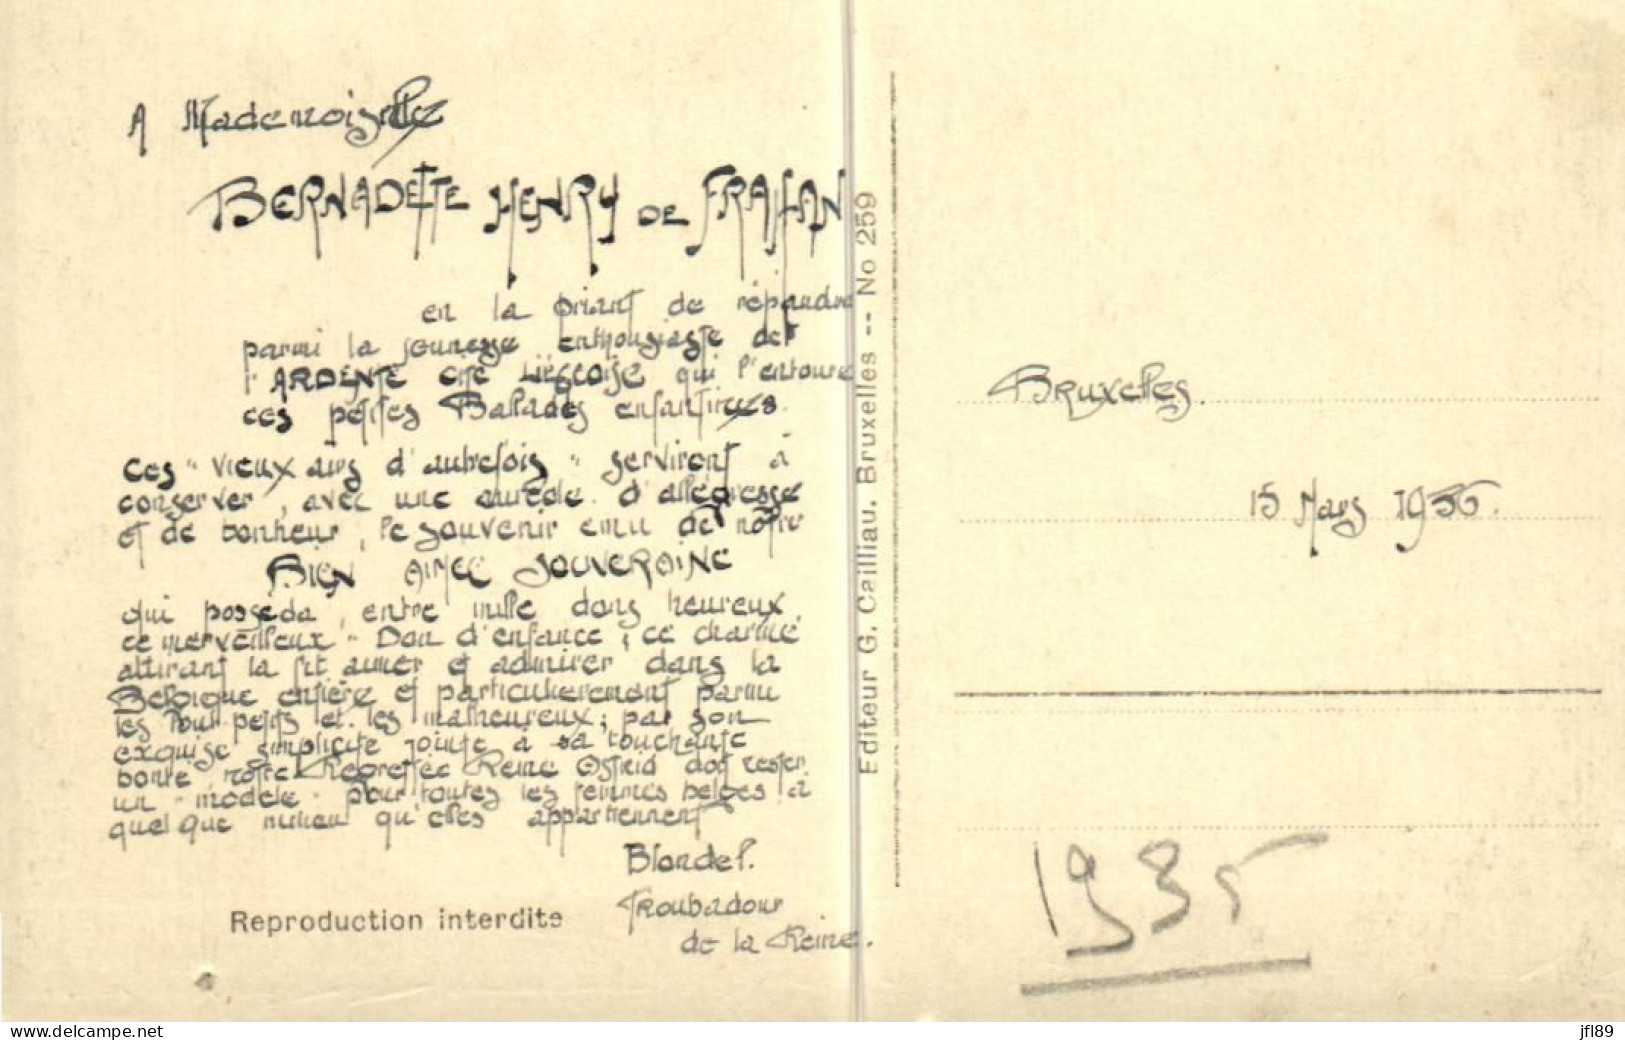 A Mademoiselle
BERNADETTE HENRY DE FRAHAN
en la priant de répandre
parmi la jeunesse enthousiaste de
l'ARDENTE CITÉ LIÉGEOISE qui l'entoure
ces petites Ballades enfantines.
Ces "vieux airs d'autrefois" serviront à
conserver, avec une auréole d'allégresse
et de bonheur, le souvenir ému de notre
BIEN AIMÉE SOUVERAINE
qui posséda, entre mille dons heureux,
ce merveilleux "Don d'enfance; ce charme
attirant la fit aimer et admirer dans la
Belgique entière et particulièrement parmi
les Tout petits et les malheureux; par son
exquise simplicité jointe à sa touchante
bonté notre Regrettée Reine Astrid doit rester
un modèle pour toutes les femmes belges à
quelque milieu qu'elles appartiennent
Blondel.
Troubadour
de la Reine.
Reproduction interdite
Editeur G. Cailliau, Bruxelles -- No 259
Bruxelles.
15 Mars 1936.
1935
www.delcampe.net
jfl89